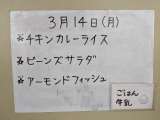 3月14日(月)
※チキンカレーライス
※ビーンズサラダ
※アーモンドフィッシュ
ごはん
牛乳